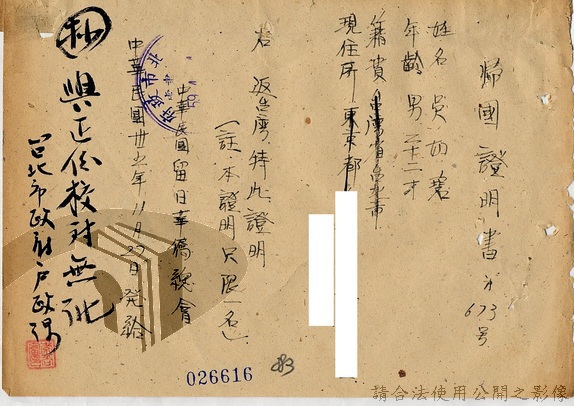 歸國證明書 才673号
姓名 吳
年齡 男 二十二才
籍貫 臺灣省台北市
現住所 東京都
右 返台灣特此證明
(註:本證明只限一名)
中華民國留日華僑總會
中華民國卅五年11月27日發給
抄 與正份校對無訛
台北市政府戶政
026616
83
請合法使用公開之影像